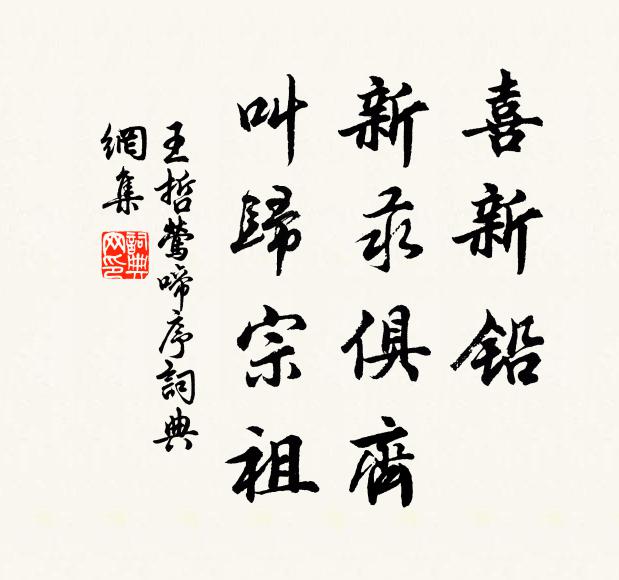 喜新鉛
新汞俱齊
叫歸宗祖
王哲鶯啼序詞典
網集
詞典
网印